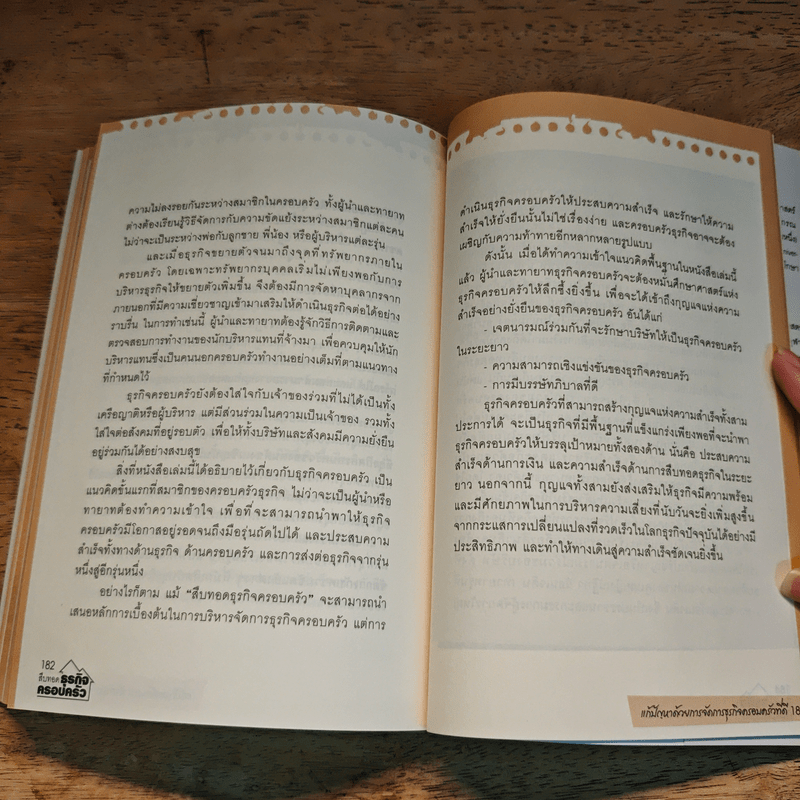 ความไม่ลงรอยกันระหว่างสมาชิกในครอบครัว ทั้งผู้นำและทายาท
ต่างต้องเรียนรู้วิธีจัดการกับความขัดแย้งระหว่างสมาชิกแต่ละคน
ไม่ว่าจะเป็นระหว่างพ่อกับลูกชาย พี่น้อง หรือผู้บริหารแต่ละรุ่น
และเมื่อธุรกิจขยายตัวจนมาถึงจุดที่ทรัพยากรภายใน
ครอบครัว โดยเฉพาะทรัพยากรบุคคลเริ่มไม่เพียงพอกับการ
บริหารธุรกิจให้ขยายตัวเพิ่มขึ้น จึงต้องมีการจัดหาบุคลากรจาก
ภายนอกที่มีความเชี่ยวชาญเข้ามาเสริมให้ดำเนินธุรกิจต่อได้อย่าง
ราบรื่น ในการทำเช่นนี้ ผู้นำและทายาทต้องรู้จักวิธีการติดตามและ
ตรวจสอบการทำงานของนักบริหารแทนที่จ้างมา เพื่อควบคุมให้นัก
บริหารแทนซึ่งเป็นคนนอกครอบครัวทำงานอย่างเต็มที่ตามแนวทาง
ที่กำหนดไว้
ธุรกิจครอบครัวยังต้องใส่ใจกับเจ้าของร่วมที่ไม่ได้เป็นทั้ง
เครือญาติหรือผู้บริหาร แต่มีส่วนร่วมในความเป็นเจ้าของ รวมทั้ง
ใส่ใจต่อสังคมที่อยู่รอบตัว เพื่อให้ทั้งบริษัทและสังคมมีความยั่งยืน
อยู่ร่วมกันได้อย่างสงบสุข
สิ่งที่หนังสือเล่มนี้ได้อธิบายไว้เกี่ยวกับธุรกิจครอบครัว เป็น
แนวคิดขั้นแรกที่สมาชิกของครอบครัวธุรกิจ ไม่ว่าจะเป็นผู้นำหรือ
ทายาทต้องทำความเข้าใจ เพื่อที่จะสามารถนำพาให้ธุรกิจ
ครอบครัวมีโอกาสอยู่รอดจนถึงมือรุ่นถัดไปได้ และประสบความ
สำเร็จทั้งทางด้านธุรกิจ ด้านครอบครัว และการส่งต่อธุรกิจจากรุ่น
หนึ่งสู่อีกรุ่นหนึ่ง
อย่างไรก็ตาม แม้ “สืบทอดธุรกิจครอบครัว” จะสามารถนำ
เสนอหลักการเบื้องต้นในการบริหารจัดการธุรกิจครอบครัว แต่การ
182
สืบทอดธุรกิจ
ครอบครัว
ดำเนินธุรกิจครอบครัวให้ประสบความสำเร็จ และรักษาให้ความ
สำเร็จให้ยั่งยืนนั้นไม่ใช่เรื่องง่าย และครอบครัวธุรกิจอาจจะต้อง
เผชิญกับความท้าทายอีกหลากหลายรูปแบบ
ดังนั้น เมื่อได้ทำความเข้าใจแนวคิดพื้นฐานในหนังสือเล่มนี้
แล้ว ผู้นำและทายาทธุรกิจครอบครัวจะต้องหมั่นศึกษาศาสตร์แห่ง
ธุรกิจครอบครัวให้ลึกซึ้งยิ่งขึ้น เพื่อจะได้เข้าถึงกุญแจแห่งความ
สำเร็จอย่างยั่งยืนของธุรกิจครอบครัว อันได้แก่
- เจตนารมณ์ร่วมกันที่จะรักษาบริษัทให้เป็นธุรกิจครอบครัว
ในระยะยาว
- ความสามารถเชิงแข่งขันของธุรกิจครอบครัว
- การมีบรรษัทภิบาลที่ดี
ธุรกิจครอบครัวที่สามารถสร้างกุญแจแห่งความสำเร็จทั้งสาม
ประการได้ จะเป็นธุรกิจที่มีพื้นฐานที่แข็งแกร่งเพียงพอที่จะนำพา
ธุรกิจครอบครัวให้บรรลุเป้าหมายทั้งสองด้าน นั่นคือ ประสบความ
สำเร็จด้านการเงิน และความสำเร็จด้านการสืบทอดธุรกิจในระยะ
ยาว นอกจากนี้ กุญแจทั้งสามยังส่งเสริมให้ธุรกิจมีความพร้อม
และมีศักยภาพในการบริหารความเสี่ยงที่นับวันจะยิ่งเพิ่มสูงขึ้น
จากกระแสการเปลี่ยนแปลงที่รวดเร็วในโลกธุรกิจปัจจุบันได้อย่างมี
ประสิทธิภาพ และทำให้ทางเดินสู่ความสำเร็จชัดเจนยิ่งขึ้น
แก้ปัญหาด้วยการจัดการธุรกิจครอบครัวที่ดี